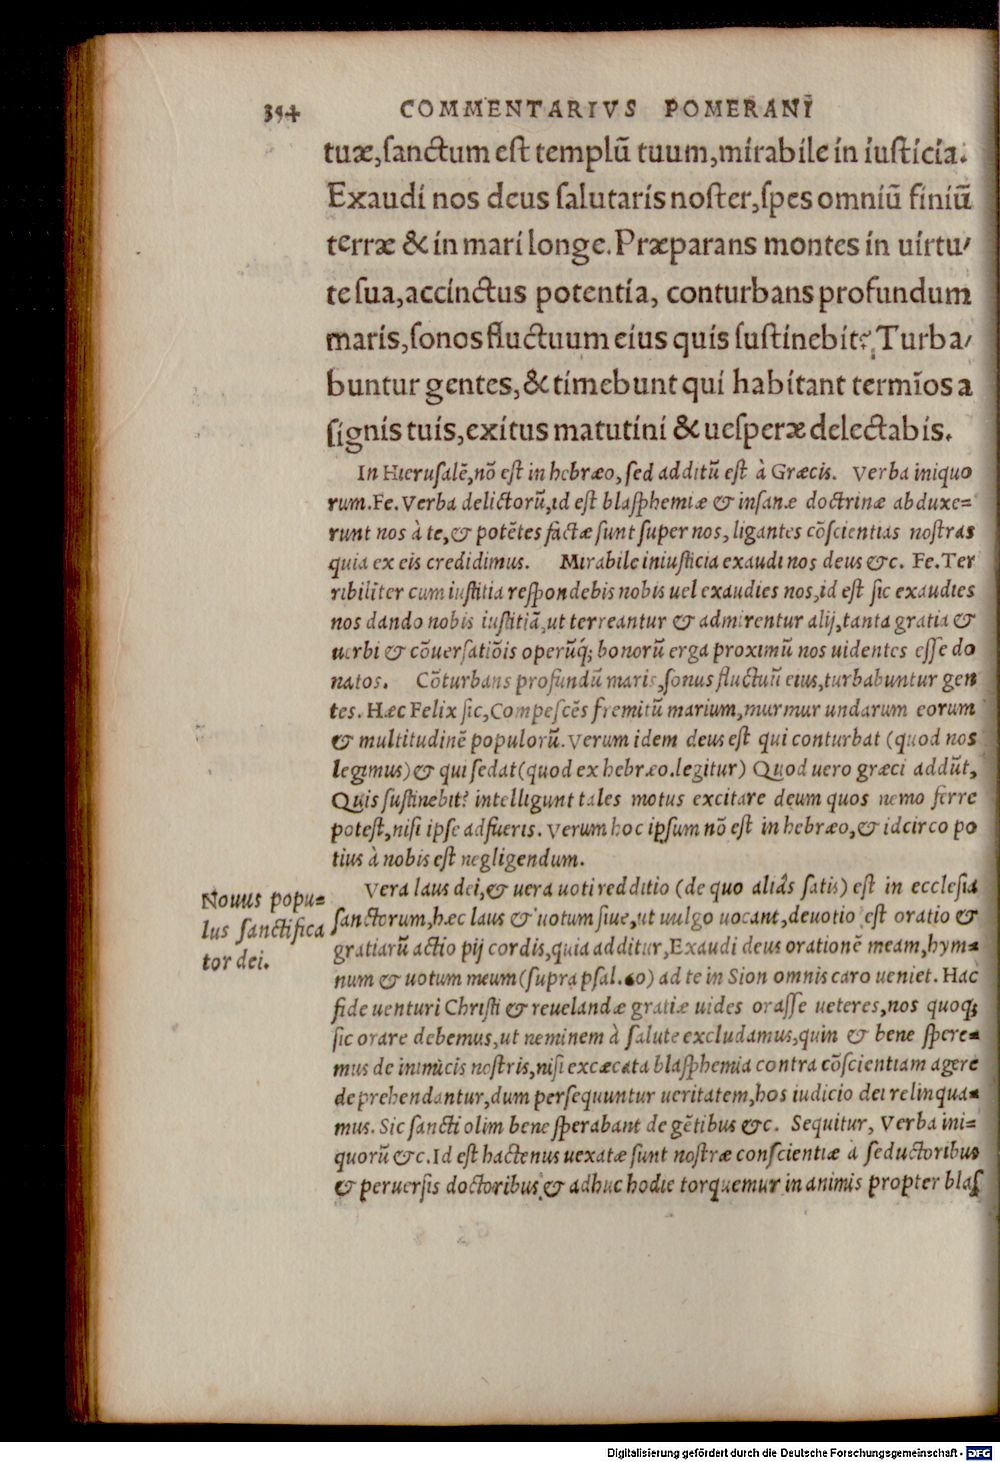 394 COMMENTARIVS POMERANI
tuæ, sanctum est templũ tuum, mirabile in iusticia.
Exaudi nos deus salutaris noster, spes omniũ finiũ
terræ & in mari longe. Præparans montes in uirtu/
te sua, accinctus potentia, conturbans profundum
maris, sonos fluctuum eius quis sustinebit? Turba/
buntur gentes, & timebunt qui habitant termĩos a
signis tuis, exitus matutini & uesperæ delectabis.
In Hierusalẽ, nõ est in hebræo, sed additũ est à Græcis. Verba iniquo
rum. Fe. Verba delictorũ, id est blasphemiæ & insanæ doctrinæ abduxe=
runt nos à te, & potẽtes factæ sunt super nos, ligantes cõscientias nostras
quia ex eis credidimus. Mirabile in iusticia exaudi nos deus &c. Fe. Ter
ribiliter cum iustitia respondebis nobis uel exaudies nos, id est sic exaudies
nos dando nobis iustitiã, ut terreantur & admirentur alij, tanta gratia &
uerbi & cõuersatiõis operũq; bonorũ erga proximũ nos uidentes esse do
natos. Cõturbans profundũ maris, sonus fluctuũ eius, turbabuntur gen
tes. Hæc Felix sic, Compescẽs fremitũ marium, murmur undarum eorum
& multitudinẽ populorũ. Verum idem deus est qui conturbat (quod nos
legimus) & qui sedat (quod ex hebræo. legitur) Quod uero græci addũt,
Quis sustinebit? intelligunt tales motus excitare deum quos nemo ferre
potest, nisi ipse adfueris. Verum hoc ipsum nõ est in hebræo, & idcirco po
tius à nobis est negligendum.
Vera laus dei, & uera uoti redditio (de quo aliâs satis) est in ecclesia
sanctorum, hæc laus & uotum siue, ut uulgo uocant, deuotio est oratio &
gratiarũ actio pij cordis, quia additur, Exaudi deus orationẽ meam, hym=
num & uotum meum (supra psal. 60) ad te in Sion omnis caro ueniet. Hac
fide uenturi Christi & reuelandæ gratiæ uides orasse ueteres, nos quoq;
sic orare debemus, ut neminem à salute excludamus, quin & bene spere=
mus de inimicis nostris, nisi excæcata blasphemia contra cõscientiam agere
deprehendantur, dum persequuntur ueritatem, hos iudicio dei relinqua=
mus. Sic sancti olim bene sperabant de gẽtibus &c. Sequitur, Verba ini=
quorũ &c. Id est hactenus uexatæ sunt nostræ conscientiæ à seductoribus
& peruersis doctoribus, & adhuc hodie torquemur in animis propter blas
Nouus popu=
lus sanctifica
tor dei.
Digitalisierung gefördert durch die Deutsche Forschungsgemeinschaft - DFG